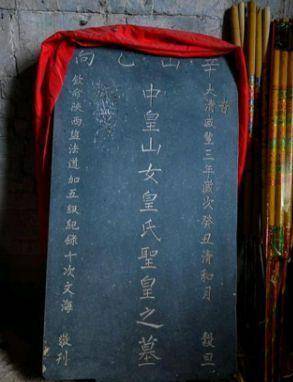 辛山乙向
旹
大清咸豐三年歲次癸丑清和月 穀旦
中皇山女皇氏聖皇之墓
欽命陝西塩法道加五級紀錄十次文海